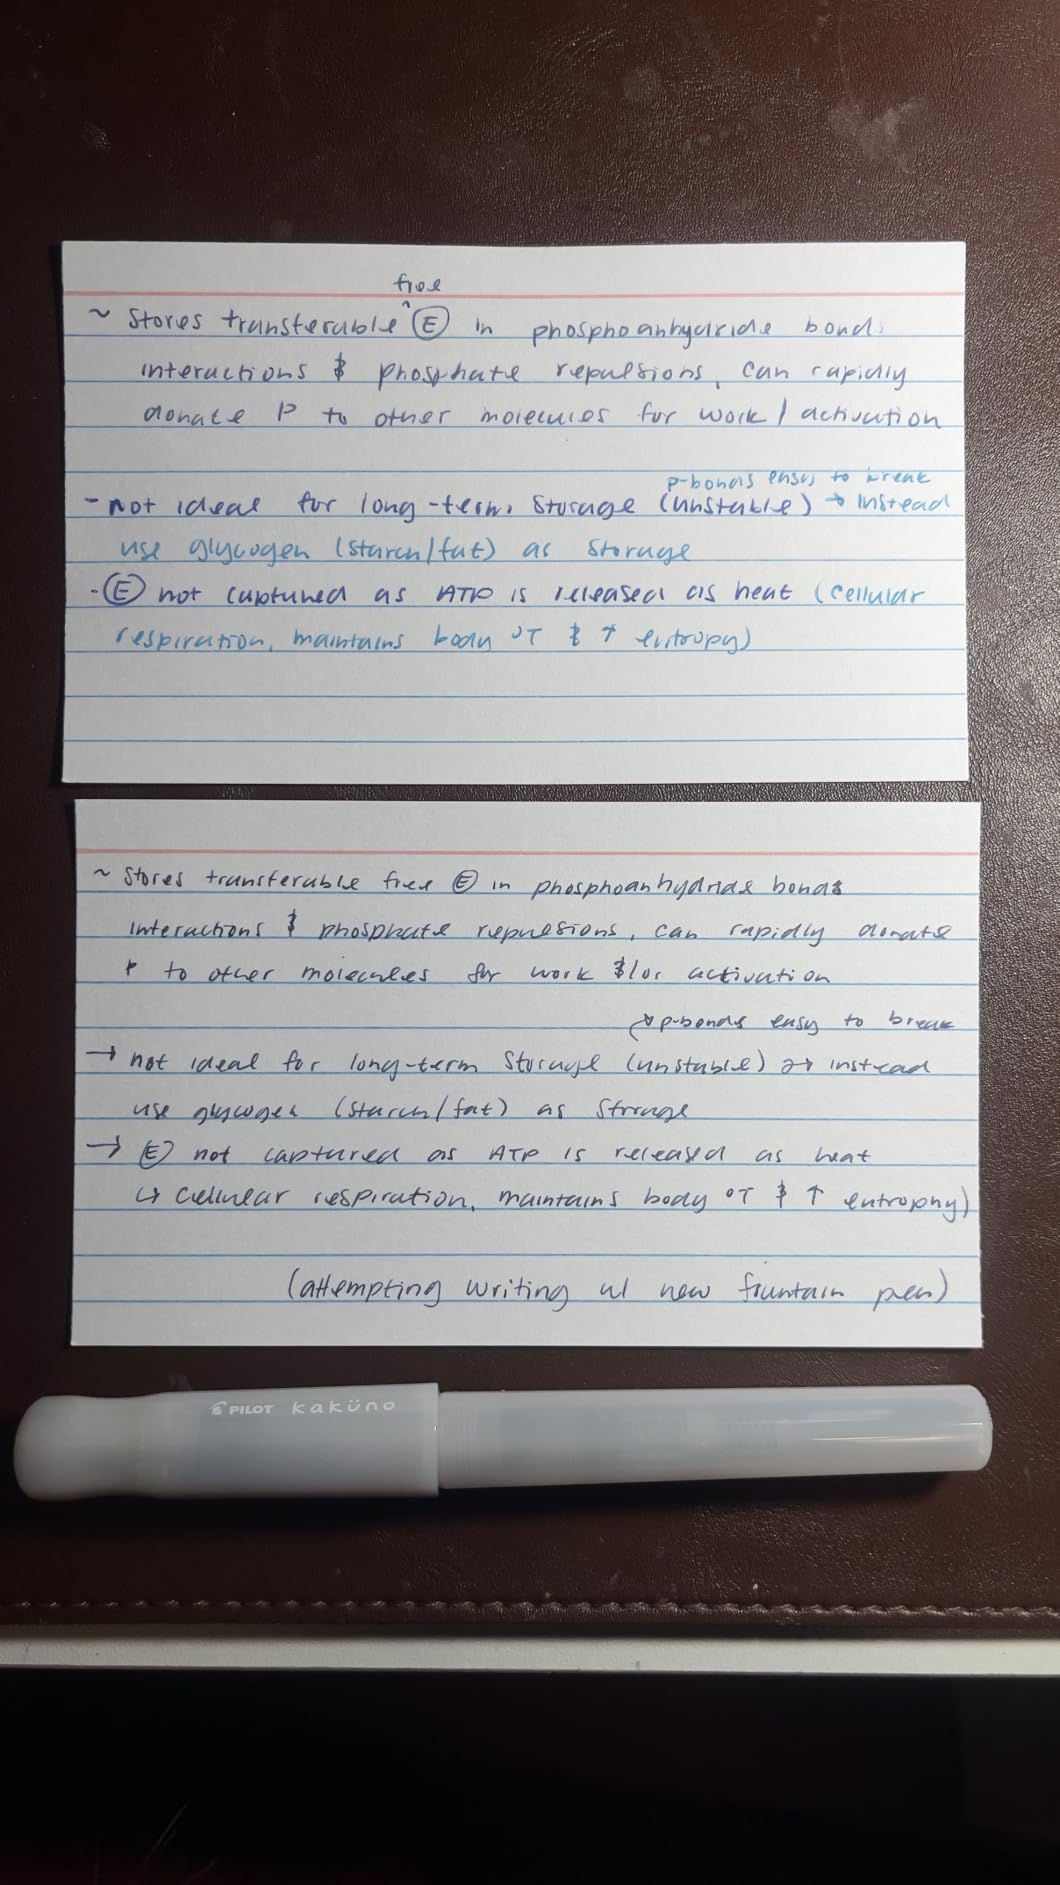 free
~ Stores transferable ^ (E) in phosphoanhydride bonds
interactions & phosphate repulsions, can rapidly
donate P to other molecules for work / activation
p-bonds easy to break
- not ideal for long-term storage (unstable) → instead
use glycogen (starch/fat) as storage
- (E) not captured as ATP is released as heat (cellular
respiration, maintains body °T & ↑ entropy)
~ Stores transferable free (E) in phosphoanhydride bonds
interactions & phosphate repulsions, can rapidly donate
P to other molecules for work &/or activation
p-bonds easy to break
→ not ideal for long-term storage (unstable) → instead
use glycogen (starch/fat) as storage
→ (E) not captured as ATP is released as heat
↳ cellular respiration, maintains body °T & ↑ entrophy)
(attempting writing w/ new fountain pen)
PILOT kaküno